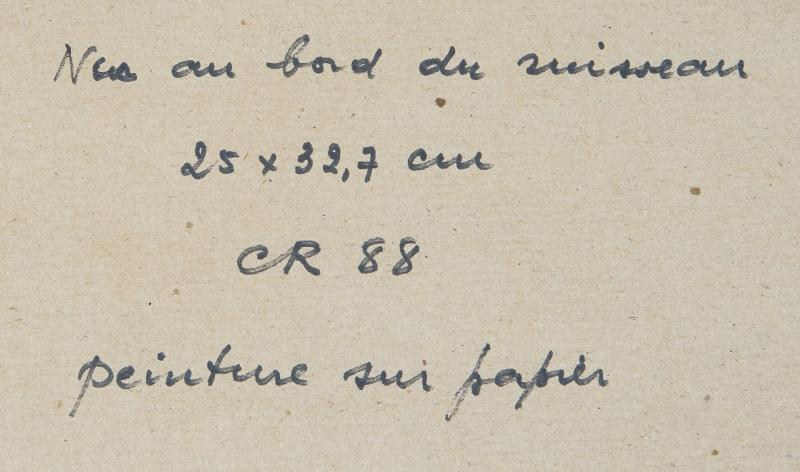 Nus au bord du ruisseau
25 x 32,7 cm
CR 88
peinture sur papier